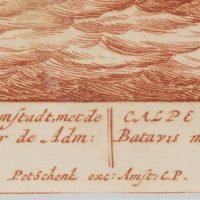 mstadt, met de
r de Adm:
CALPE
Batavis m
Pet: Schenk exc: Amst: C.P.